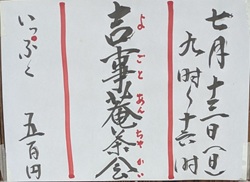 七月十三日(日)
九时~十六时
吉事菴茶会
よごとあんちゃかい
いっぷく 五百円